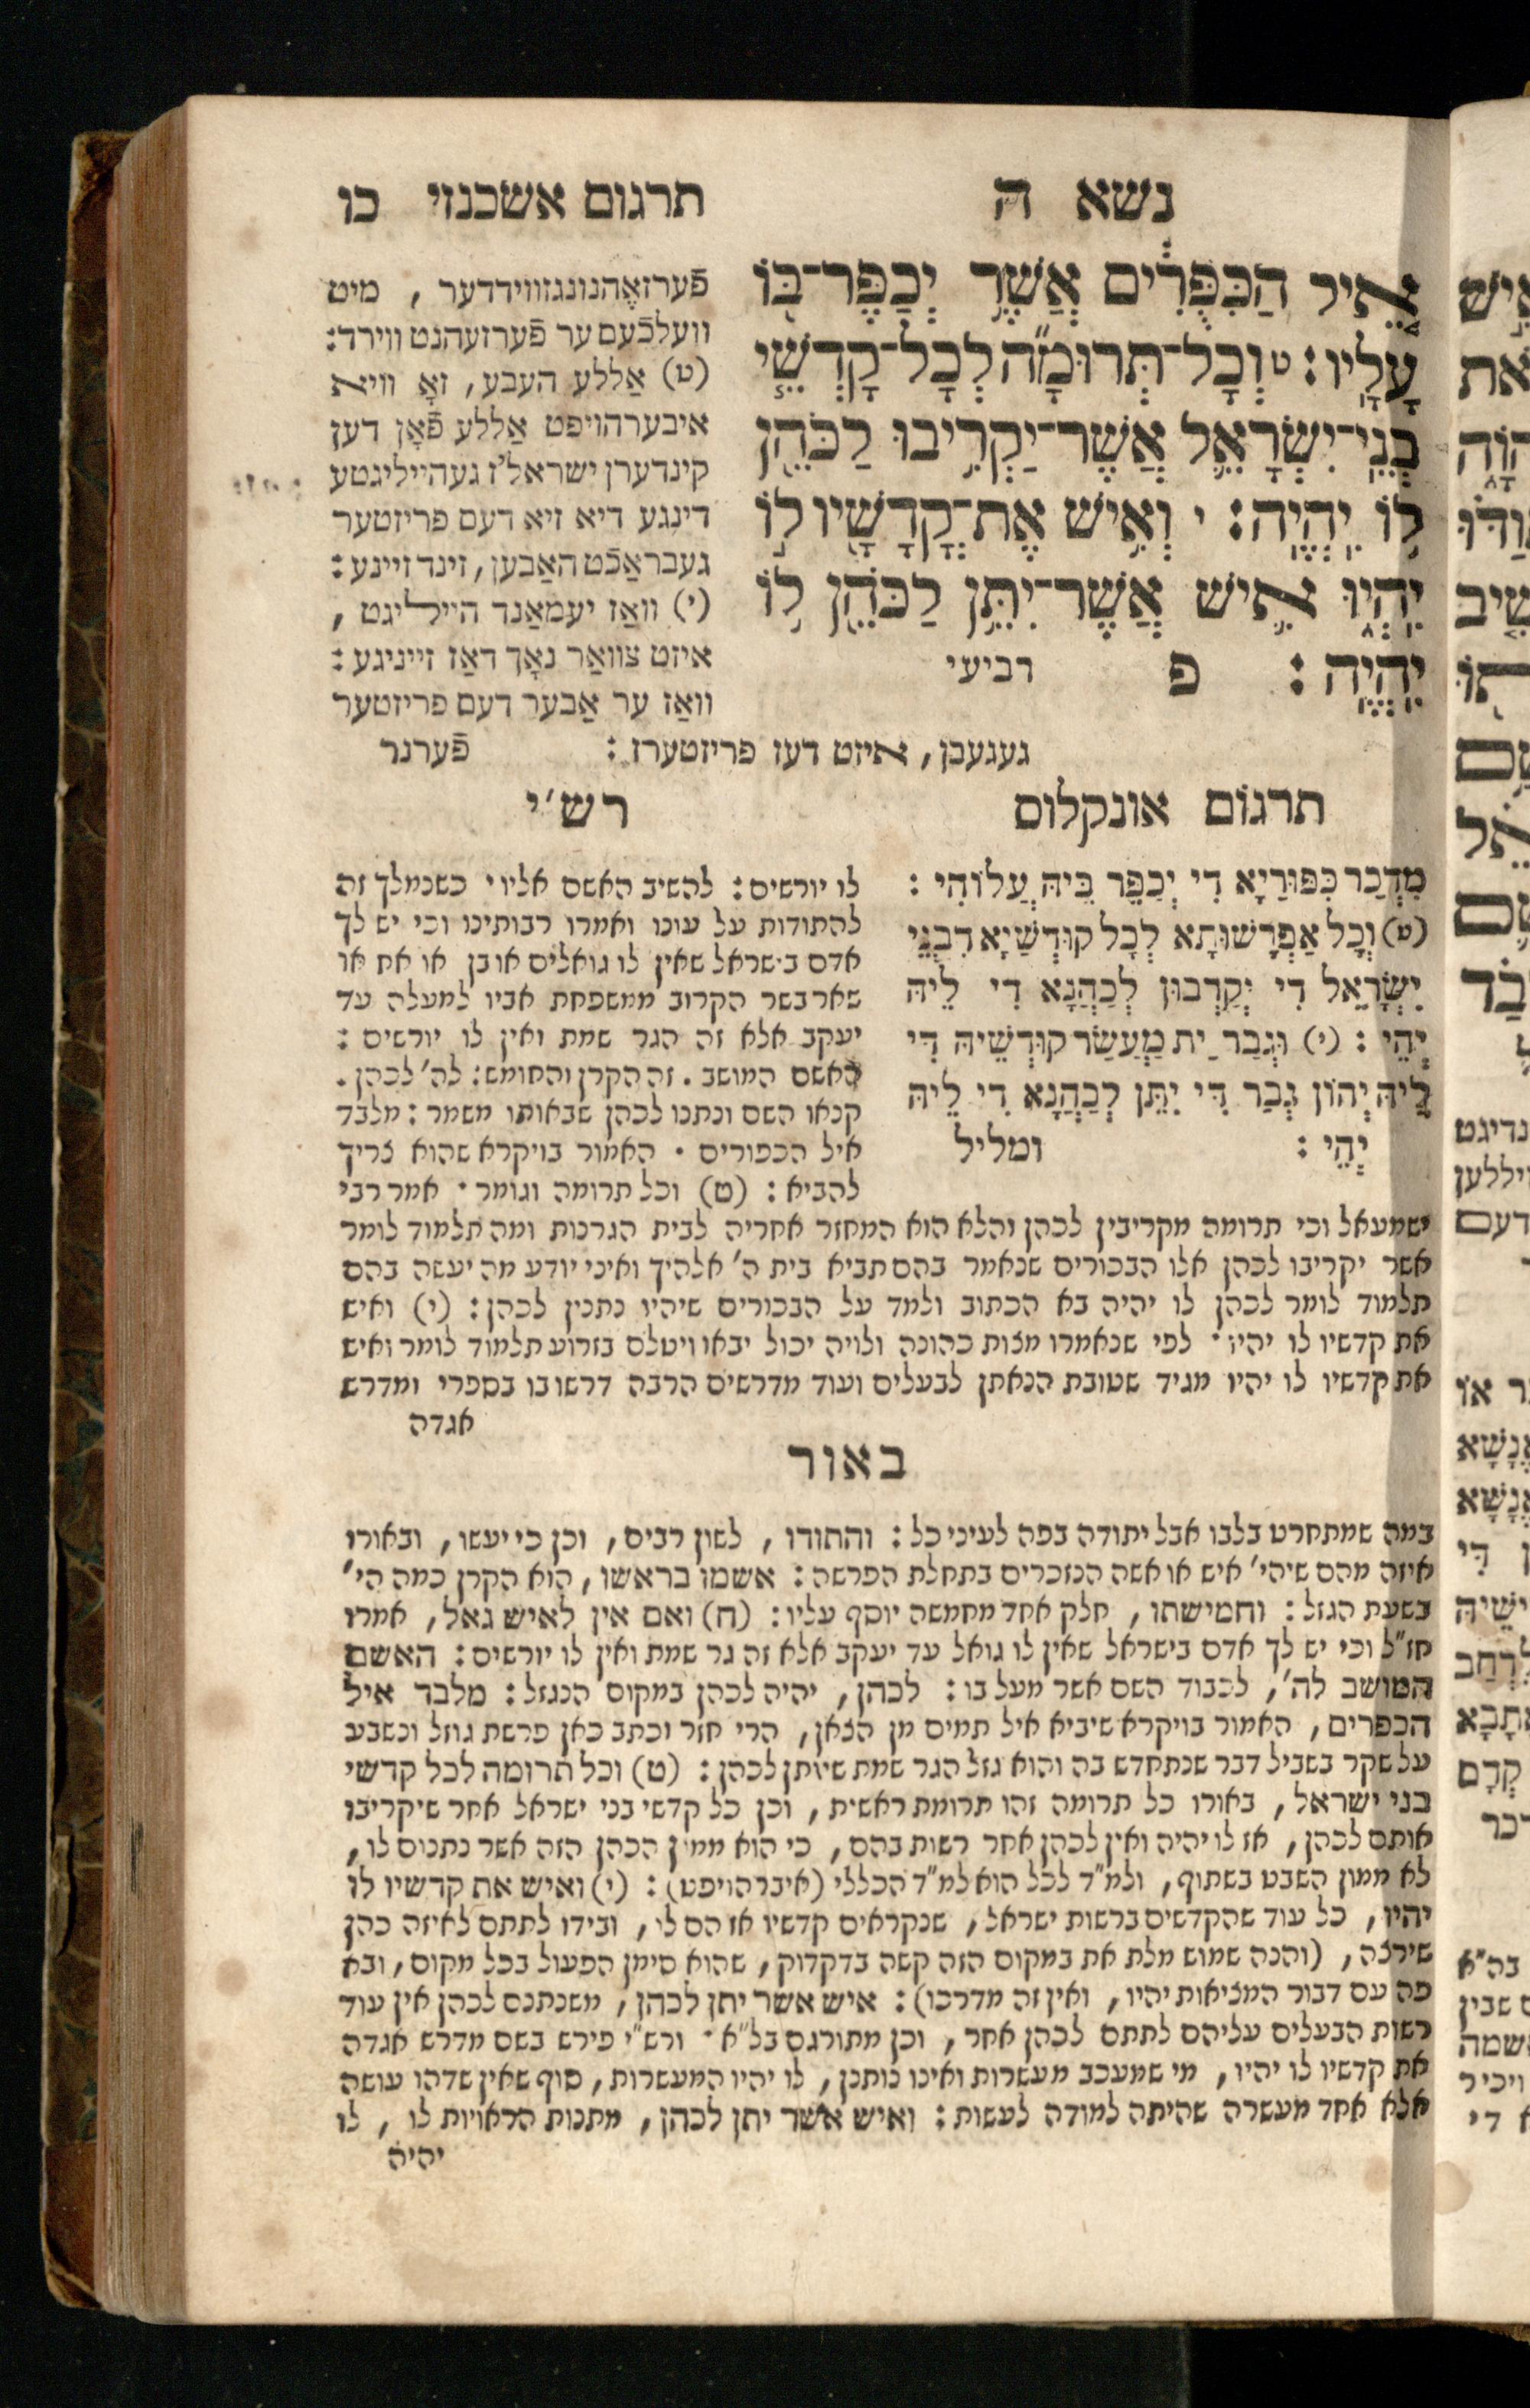 נשא ה
תרגום אשכנזי כו
אֵ֚יל הַכִּפֻּרִ֔ים אֲשֶׁ֥ר יְכַפֶּר־בּ֖וֹ
עָלָֽיו: ט וְכָל־תְּרוּמָ֞ה לְכָל־קָדְשֵׁ֧י
בְנֵֽי־יִשְׂרָאֵ֛ל אֲשֶׁר־יַקְרִ֥יבוּ לַכֹּהֵ֖ן
ל֥וֹ יִֽהְיֶֽה: י וְאִ֥ישׁ אֶת־קֳדָשָׁ֖יו ל֣וֹ
יִֽהְי֑וּ אִ֛ישׁ אֲשֶׁר־יִתֵּ֥ן לַכֹּהֵ֖ן ל֥וֹ
יִֽהְיֶֽה: פ רביעי
פֿערזאֶהנונגזווידדער, מיט
וועלכֿעם ער פֿערזעהנט ווירד:
(ט) אַללע העבע, זאָ וויא
איבערהויפט אַללע פֿאָן דען
קינדערן ישראל'ז געהייליגטע
דינגע דיא זיא דעם פריזטער
געבראַכֿט האַבען, זינד זיינע:
(י) וואַז יעמאַנד הייליגט,
איזט צוואַר נאָך דאַז זייניגע:
וואַז ער אַבער דעם פריזטער
געגעבן, איזט דעז פריזטערז: פֿערנר
תרגום אונקלוס
מִדְּכַר כִּפּוּרַיָא דִי יְכַפֵּר בֵּיהּ עֲלוֹהִי:
(ט) וְכָל אַפְרָשׁוּתָא לְכָל קוּדְשַׁיָא דִבְנֵי
יִשְׂרָאֵל דִי יְקַרְבוּן לְכַהֲנָא דִי לֵיהּ
יְהֵי: (י) וּגְבַר יַת מַעְשַׂר קוּדְשֵׁיהּ דִּי
לֵיהּ יְהוֹן גְּבַר דִּי יִתֵּן לְכַהֲנָא דִי לֵיהּ
יְהֵי: ומליל
רש'י
לו יורשים: להשיב האשם אליו י כשנמלך זה
להתודות על עונו ואמרו רבותינו וכי יש לך
אדם בישראל שאין לו גואלים או בן או אח או
שאר בשר הקרוב ממשפחת אביו למעלה עד
יעקב אלא זה הגר שמת ואין לו יורשים:
האשם המושב. זה הקרן והחומש: לה' לכהן.
קנאו השם ונתנו לכהן שבאותו משמר: מלבד
איל הכפורים · האמור בויקרא שהוא צריך
להביא: (ט) וכל תרומה וגומר · אמר רבי
ישמעאל וכי תרומה מקריבין לכהן והלא הוא המחזר אחריה לבית הגרנות ומה תלמוד לומר
אשר יקריבו לכהן אלו הבכורים שנאמר בהם תביא בית ה' אלהיך ואיני יודע מה יעשה בהם
תלמוד לומר לכהן לו יהיה בא הכתוב ולמד על הבכורים שיהיו נתנין לכהן: (י) ואיש
את קדשיו לו יהיו · לפי שנאמרו מצות כהונה ולויה יכול יבאו ויטלם בזרוע תלמוד לומר ואיש
את קדשיו לו יהיו מגיד שטובת הנאתן לבעלים ועוד מדרשים הרבה דרשו בו בספרי ומדרש
אגדה
באור
במה שמתחרט בלבו אבל יתודה בפה לעיני כל: והתודו, לשון רבים, וכן כי יעשו, ובאורו
איזה מהם שיהי' איש או אשה הנזכרים בתחלת הפרשה: אשמו בראשו, הוא הקרן כמה הי'
בשעת הגזל: וחמישתו, חלק אחד מחמשה יוסף עליו: (ח) ואם אין לאיש גאל, אמרו
חז"ל וכי יש לך אדם בישראל שאין לו גואל עד יעקב אלא זה גר שמת ואין לו יורשים: האשם
המושב לה', לכבוד השם אשר מעל בו: לכהן, יהיה לכהן במקום הנגזל: מלבד איל
הכפרים, האמור בויקרא שיביא איל תמים מן הצאן, הרי חזר וכתב כאן פרשת גוזל ונשבע
על שקר בשביל דבר שנתחדש בה והוא גזל הגר שמת שיותן לכהן: (ט) וכל תרומה לכל קדשי
בני ישראל, באורו כל תרומה זהו תרומת ראשית, וכן כל קדשי בני ישראל אחר שיקריבו
אותם לכהן, אז לו יהיה ואין לכהן אחר רשות בהם, כי הוא ממון הכהן הזה אשר נתנום לו,
לא ממון השבט בשתוף, ולמ"ד לכל הוא למ"ד הכללי (איברהויפט): (י) ואיש את קדשיו לו
יהיו, כל עוד שהקדשים ברשות ישראל, שנקראים קדשיו אז הם לו, ובידו לתתם לאיזה כהן
שירצה, (והנה שמוש מלת את במקום הזה קשה בדקדוק, שהוא סימן הפעול בכל מקום, ובא
פה עם דבור המציאות יהיו, ואין זה מדרכו): איש אשר יתן לכהן, משנתנם לכהן אין עוד
רשות הבעלים עליהם לתתם לכהן אחר, וכן מתורגם בל"א · ורש"י פירש בשם מדרש אגדה
את קדשיו לו יהיו, מי שמעכב מעשרות ואינו נותנן, לו יהיו המעשרות, סוף שאין שדהו עושה
אלא אחד מעשרה שהיתה למודה לעשות: ואיש אשר יתן לכהן, מתנות הראויות לו, לו
יהיה